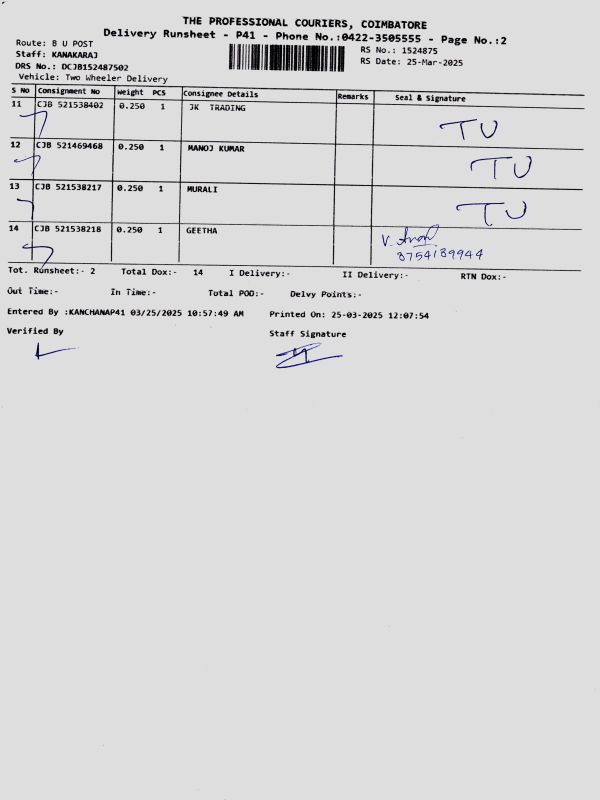 THE PROFESSIONAL COURIERS, COIMBATORE
Delivery Runsheet - P41 - Phone No.:0422-3505555 - Page No.:2
Route: B U POST
RS No.: 1524875
Staff: KANAKARAJ
RS Date: 25-Mar-2025
DRS No.: DCJB152487502
Vehicle: Two Wheeler Delivery
S No Consignment No Weight PCS Consignee Details Remarks Seal & Signature
11 CJB 521538402 0.250 1 JK TRADING TU
12 CJB 521469468 0.250 1 MANOJ KUMAR TU
13 CJB 521538217 0.250 1 MURALI TU
14 CJB 521538218 0.250 1 GEETHA
8754189944
Tot. Runsheet:- 2 Total Dox:- 14 I Delivery:- II Delivery:- RTN Dox:-
Out Time:- In Time:- Total POD:- Delvy Points:-
Entered By :KANCHANAP41 03/25/2025 10:57:49 AM Printed On: 25-03-2025 12:07:54
Verified By Staff Signature